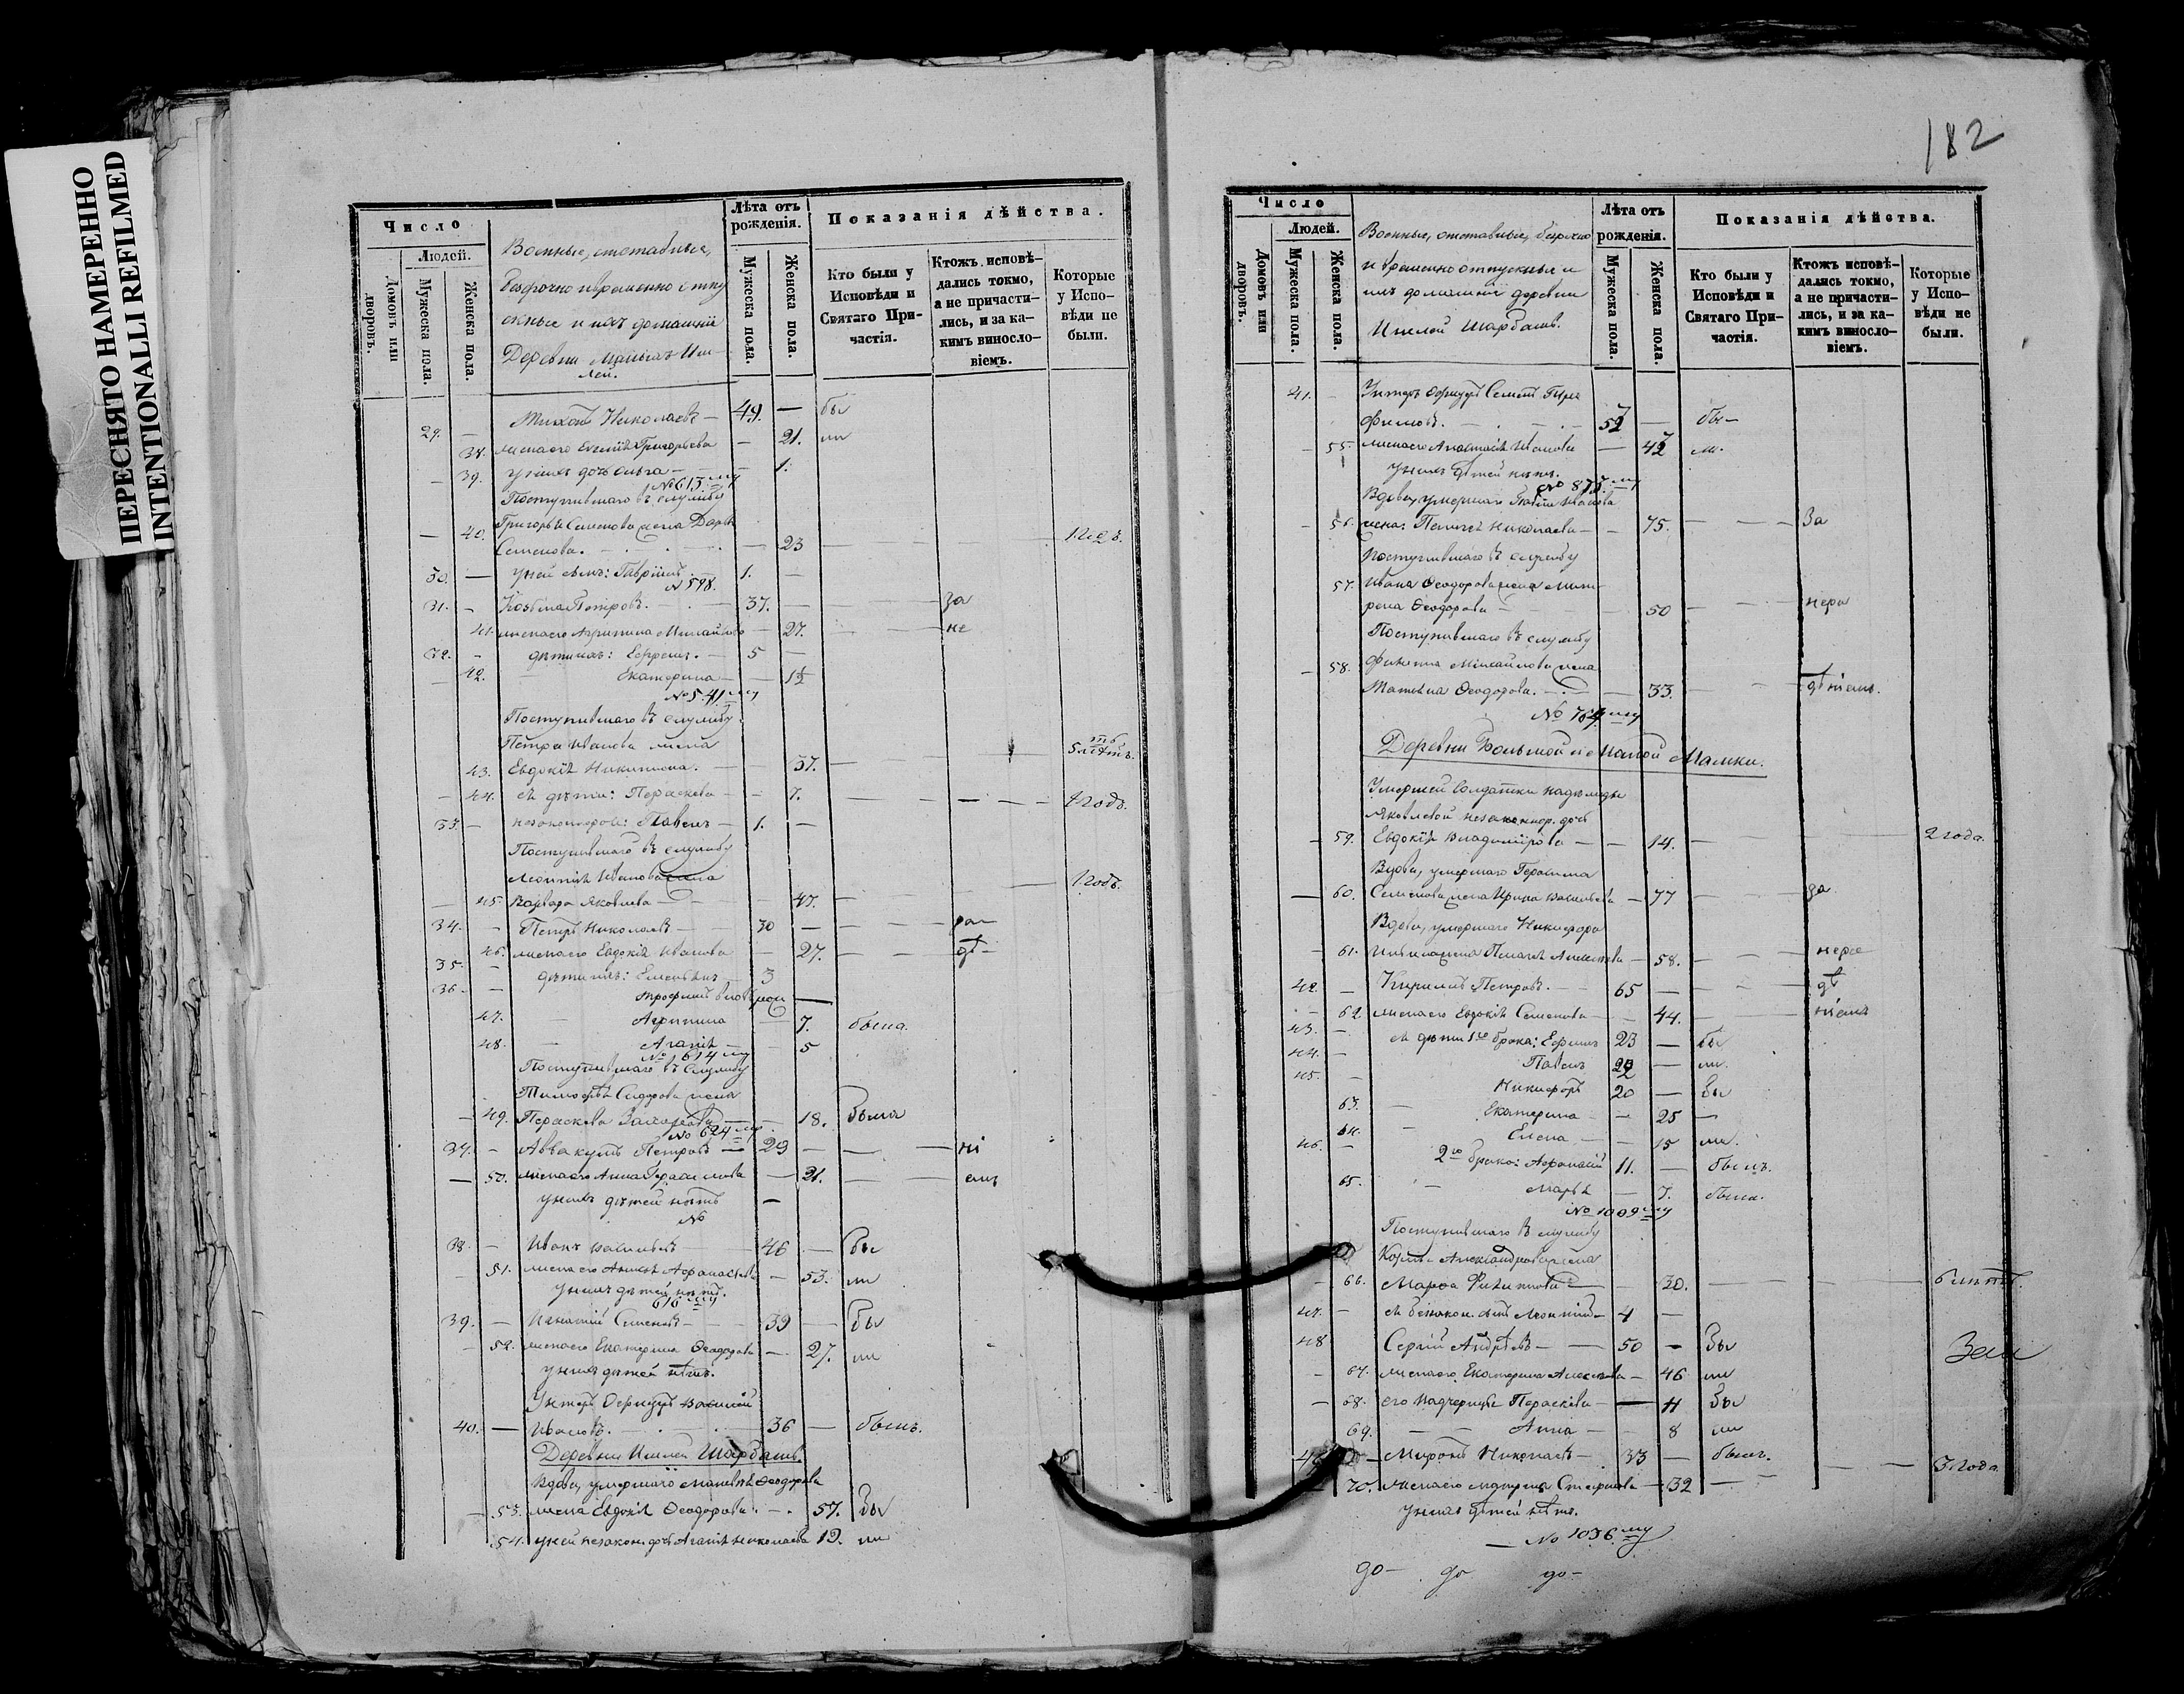 ПЕРЕСНЯТО НАМЕРЕННО
INTENTIONALLI REFILMED
Число
Людей.
Домовъ или дворовъ.
Мужеска пола.
Женска пола.
Военные, отставные,
безсрочно и временно отпу
скные и ихъ домашніи
Деревни
Лѣта отъ рожденія.
Мужеска пола.
Женска пола.
Показанія дѣйства.
Кто были у Исповѣди и Святаго Причастія.
Ктожъ исповѣдались токмо, а не причастились, и за какимъ винословіемъ.
Которые у Исповѣди не были.
29. — Николаевъ — 49. — бы
38. жена его Григорьева — 21. ли
39. у нихъ дочь Ольга — 1.
№ 613 му
Поступившаго въ службу
— 40. Григорья Семенова жена Дарья
Семенова. — 23 1 годъ.
30. — у ней сынъ: Гавріилъ 1. —
№ 598.
31. — Козьма Петровъ. — 37. — за
41. жена его Агрипина Михайлова — 27. не
32. — дѣти ихъ: Ефремъ. — 5 —
42. Екатерина — 1½
№ 541 му
Поступившаго въ службу
Петра Иванова жена
43. Евдокія Никитина. — 37. 5 лѣтъ.
— 44. ея дѣти: Параскева — 7. 1 годъ.
33. — незаконнорож: Павелъ — 1. —
Поступившаго въ службу
Леонтія Иванова жена 1 годъ.
— 45. Варвара Яковлева — 47. —
34. — Петръ Николаевъ — 30 — ра
46. жена его Евдокія Иванова — 27. дѣ
35. — дѣти ихъ: — 3
36. — Трофимъ
47. Агрипина — 7. была.
48. Агафія — 5
№ 614 му
Поступившаго въ службу
Тимофѣя Сидорова жена
— 49. Параскева Захарова — 18. была
№ 624 му
37. — Аввакумъ Петровъ — 29 — ні
— 50. жена его Анна Герасимова — 21. емъ
у нихъ дѣтей нѣтъ —
№
38. — Иванъ Васильевъ — 46 — бы
— 51. жена его Афанасьева — 53. ли
у нихъ дѣтей нѣтъ.
616 му
39. — Игнатій Семеновъ — 39 — бы
— 52. жена его Екатерина Ѳеодорова — 27. ли
у нихъ дѣтей нѣтъ.
Унтеръ Офицеръ Василій
40. — Ивановъ. — 36 — былъ.
Деревни Ишлей Шарбашъ.
Вдова, умершаго Матвѣя Ѳеодорова
— 53. жена Евдокія Ѳеодорова — 57. бы
54. у ней незакон. дочь Агафія Николаева 19. ли
182
Число
Людей.
Домовъ или дворовъ.
Мужеска пола.
Женска пола.
Военные, отставные, безсрочно
и временно отпускные и
ихъ домашніи деревни
Ишлей Шарбашъ.
Лѣта отъ рожденія.
Мужеска пола.
Женска пола.
Показанія дѣйства.
Кто были у Исповѣди и Святаго Причастія.
Ктожъ исповѣдались токмо, а не причастились, и за какимъ винословіемъ.
Которые у Исповѣди не были.
41. — Унтеръ Офицеръ
— бы—
— 55. жена его Анастасія Иванова — ли.
у нихъ дѣтей нѣтъ.
Вдова, умершаго Иванова
— 56. жена: Пелагія Николаева — 75. за
Поступившаго въ службу
57. Ивана Ѳеодорова жена Мат-
рена Ѳеодорова — 50 нера
Поступившаго въ службу
— 58. Филиппа Михайлова жена
Матрена Ѳеодорова. — 33. дѣніемъ.
№ 764 му
Деревни Большой и Малой Мамки.
Умершей Солдатки Надежды
Яковлевой незаконнор. дочь
— 59. Евдокія Владимірова — 14. 2 года.
Вдова, умершаго Герасима
— 60. Семенова жена Ирина Васильева — 77 за
Вдова, умершаго Никифора
— 61. жена Пелагія Алексѣева — 58. нера
42. — Кирилъ Петровъ. — 65 — дѣ
— 62 жена его Евдокія Семенова — 44. ніемъ
43. — ея дѣти 1го брака: Ефимъ 23 — бы
44. — Павелъ — ли.
45. — Никифоръ 20 — бы
63. — Екатерина — 25 —
64. — Елена — 15 ли.
46. — 2го брака: Афанасій 11. — былъ.
65. — Марья — 7. была.
№ 1009 му
Поступившаго въ службу
Александрова жена
— 66. Марѳа Филиппова — 30. 6 лѣтъ.
47. — ея незакон. сынъ Леонтій — 4 —
48 Сергій Андреевъ — 50 — бы
— 67. жена его Екатерина Алексѣева — 46 ли
— 68. его падчерицы Параскева — 11 бы
69. — Анна — 8 ли
— Миронъ Николаевъ — 33 — былъ.
70. жена его Матрена — 32 — 3 года
у нихъ дѣтей нѣтъ.
— № 1036 му
до— до до—